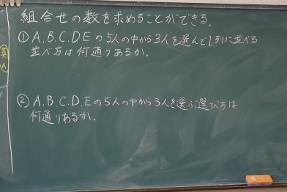 組合せの数を求めることができる。
① A,B,C,D,Eの5人の中から3人を選んで1列に並べる
並べ方は何通りあるか。
② A,B,C,D,Eの5人の中から3人を選ぶ選び方は
何通りあるか。